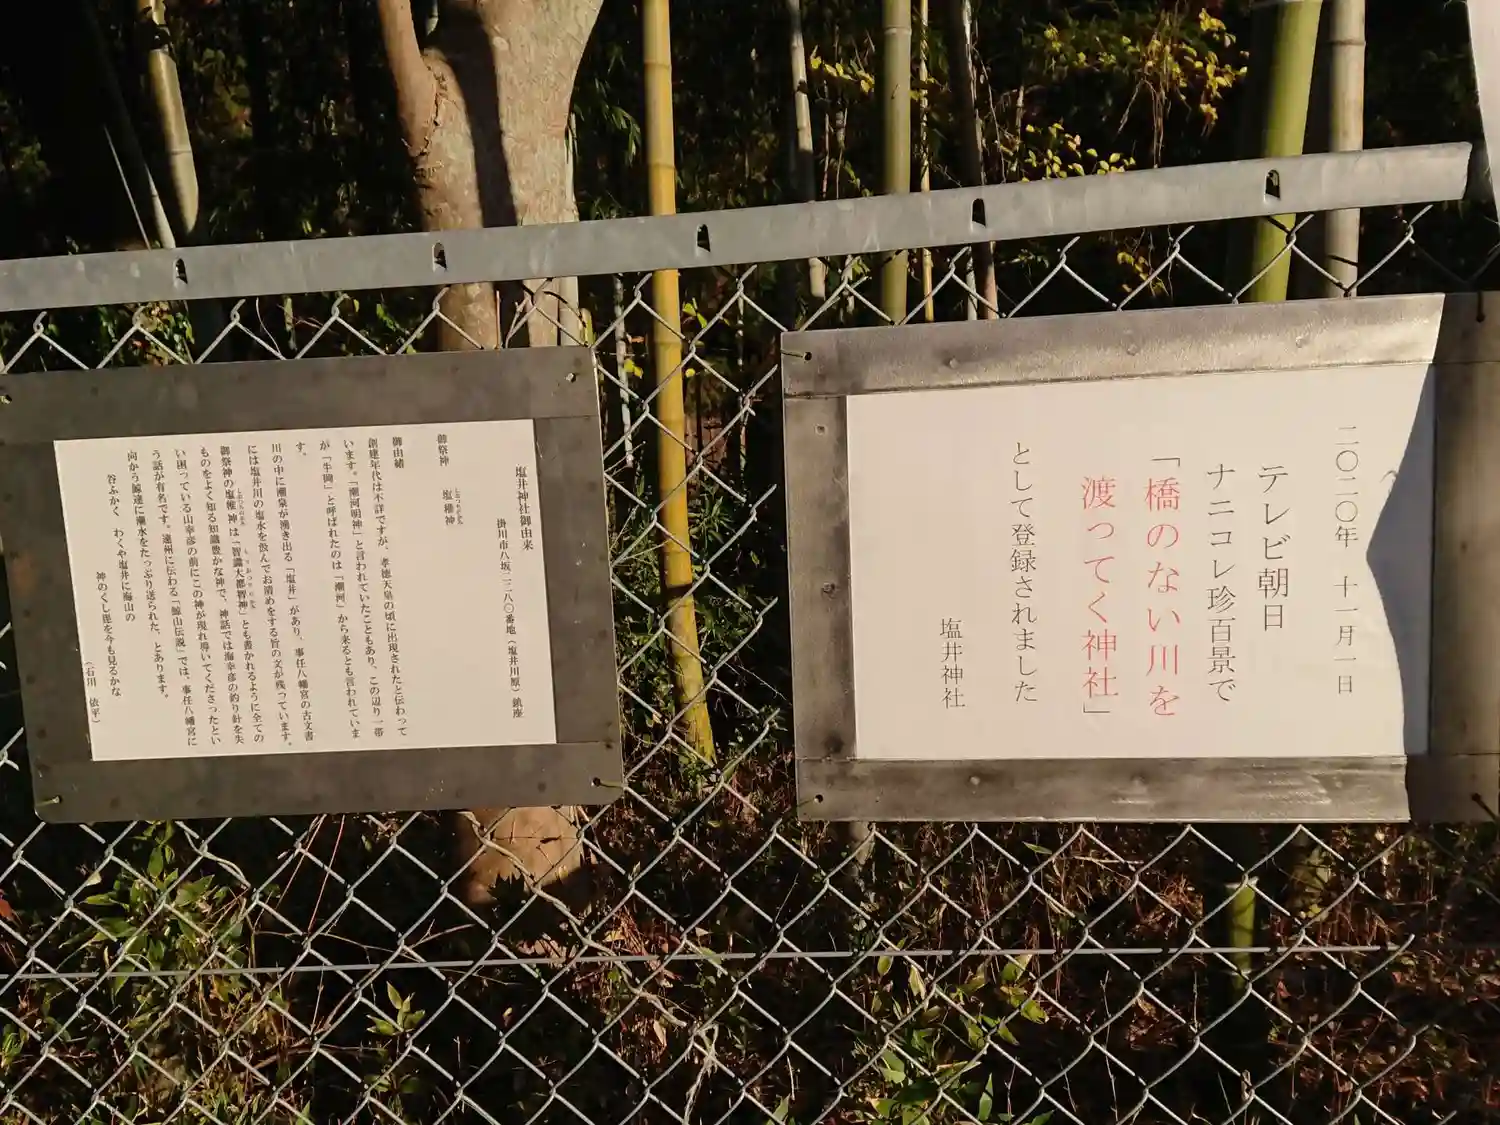 塩井神社御由来
掛川市八坂二二八〇番地(塩井川原)鎮座
御祭神 塩椎神
御由緒
創建年代は不詳ですが、孝徳天皇の頃に出現されたと伝わって
います。「潮河明神」と言われていたこともあり、この辺り一帯
が「牛岡」と呼ばれたのは「潮河」から来るとも言われていま
す。
川の中に潮泉が湧き出る「塩井」があり、事任八幡宮の古文書
には塩井川の塩水を飲んでお清めをする旨の文が残っています。
御祭神の塩椎神は「智識大都智神」とも書かれるように全ての
ものをよく知る知識豊かな神で、神話では海幸彦の釣り針を失
い困っている山幸彦の前にこの神が現れ導いてくださったとい
う話が有名です。遠州に伝わる「鯨山伝説」では、事任八幡宮に
向かう鯨達に潮水をたっぷり送られた、とあります。
谷ふかく わくや塩井に海山の
神のくし毘を今も見るかな
(石川 依平)
二〇二〇年 十一月一日
テレビ朝日
ナニコレ珍百景で
「橋のない川を
渡ってく神社」
として登録されました
塩井神社